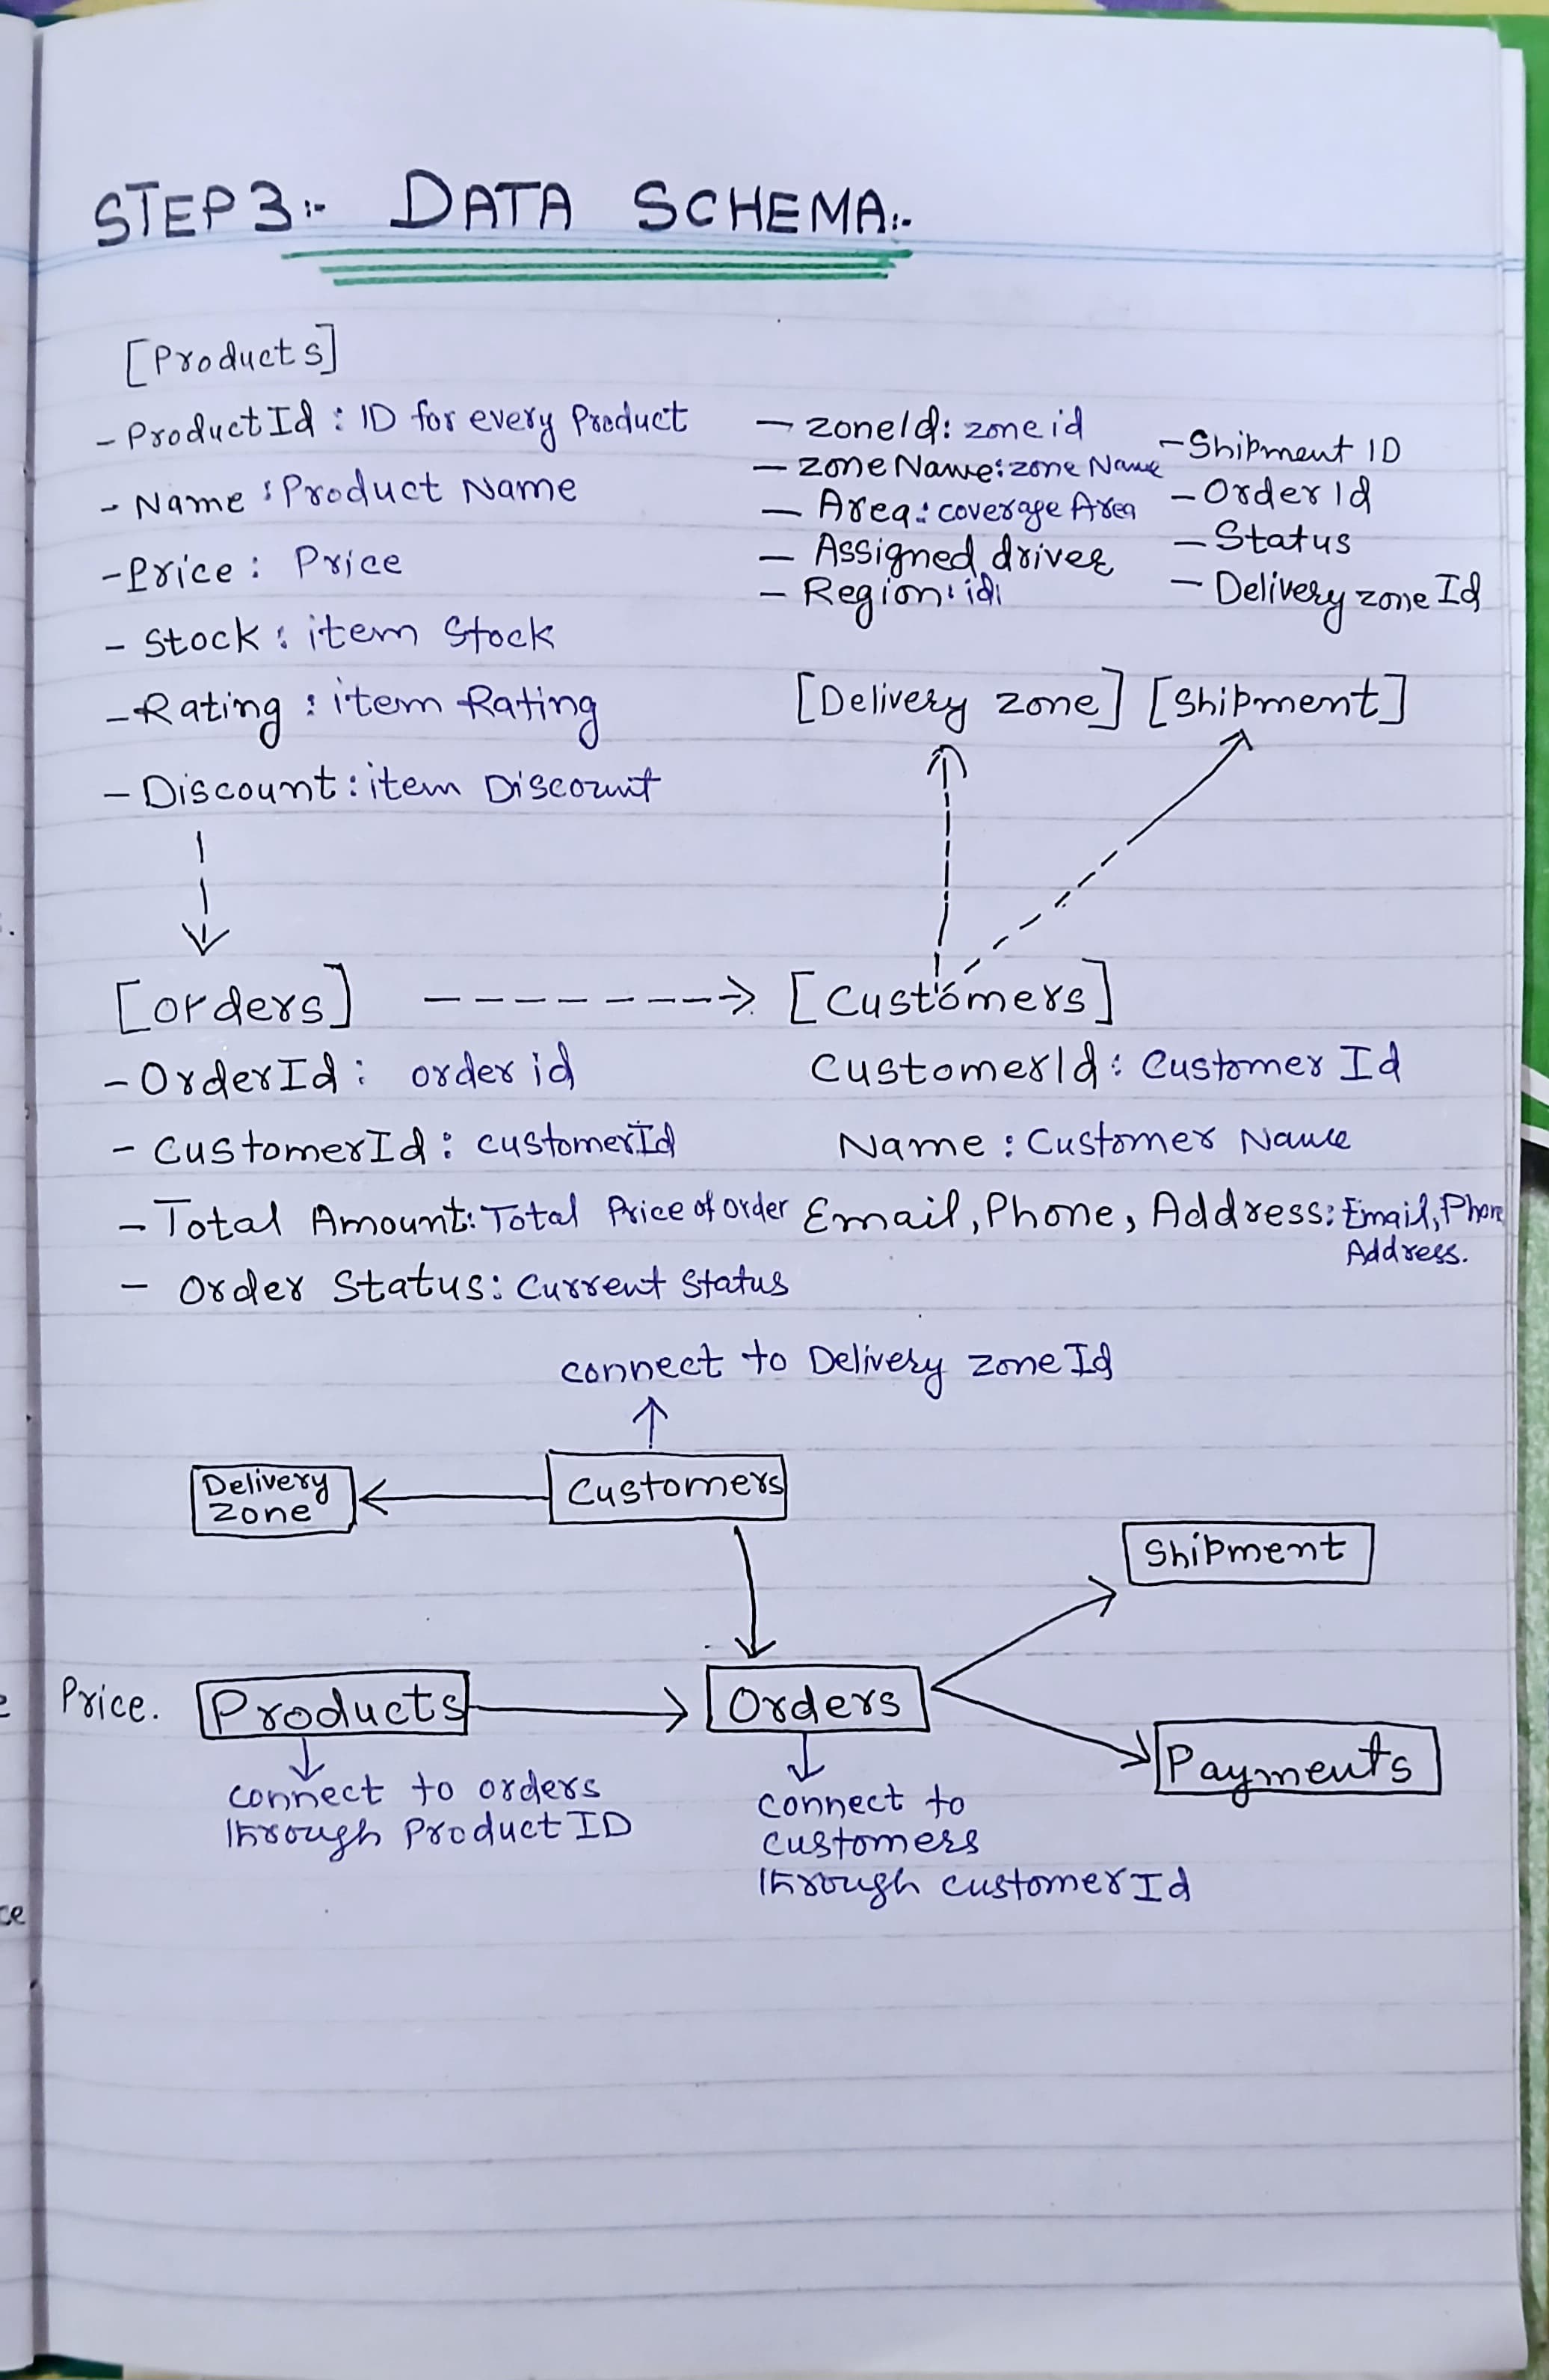 STEP 3:- DATA SCHEMA:-
[Products]
- ProductId : ID for every Product
- Name : Product Name
- Price : Price
- Stock : item Stock
- Rating : item Rating
- Discount : item Discount
- zoneId : zone id
- zone Name : zone Name
- Area : coverage Area
- Assigned driver
- Region : id
- Shipment ID
- Order Id
- Status
- Delivery zone Id
[Delivery zone] [Shipment]
[orders] --------> [Customers]
- OrderId : order id
- CustomerId : customerId
- Total Amount : Total Price of order
- Order Status : Current Status
CustomerId : Customer Id
Name : Customer Name
Email, Phone, Address : Email, Phone
Address.
connect to Delivery zone Id
Delivery
Zone
Customers
Shipment
Price.
Products
Orders
Payments
connect to orders
through Product ID
connect to
customers
through customer Id